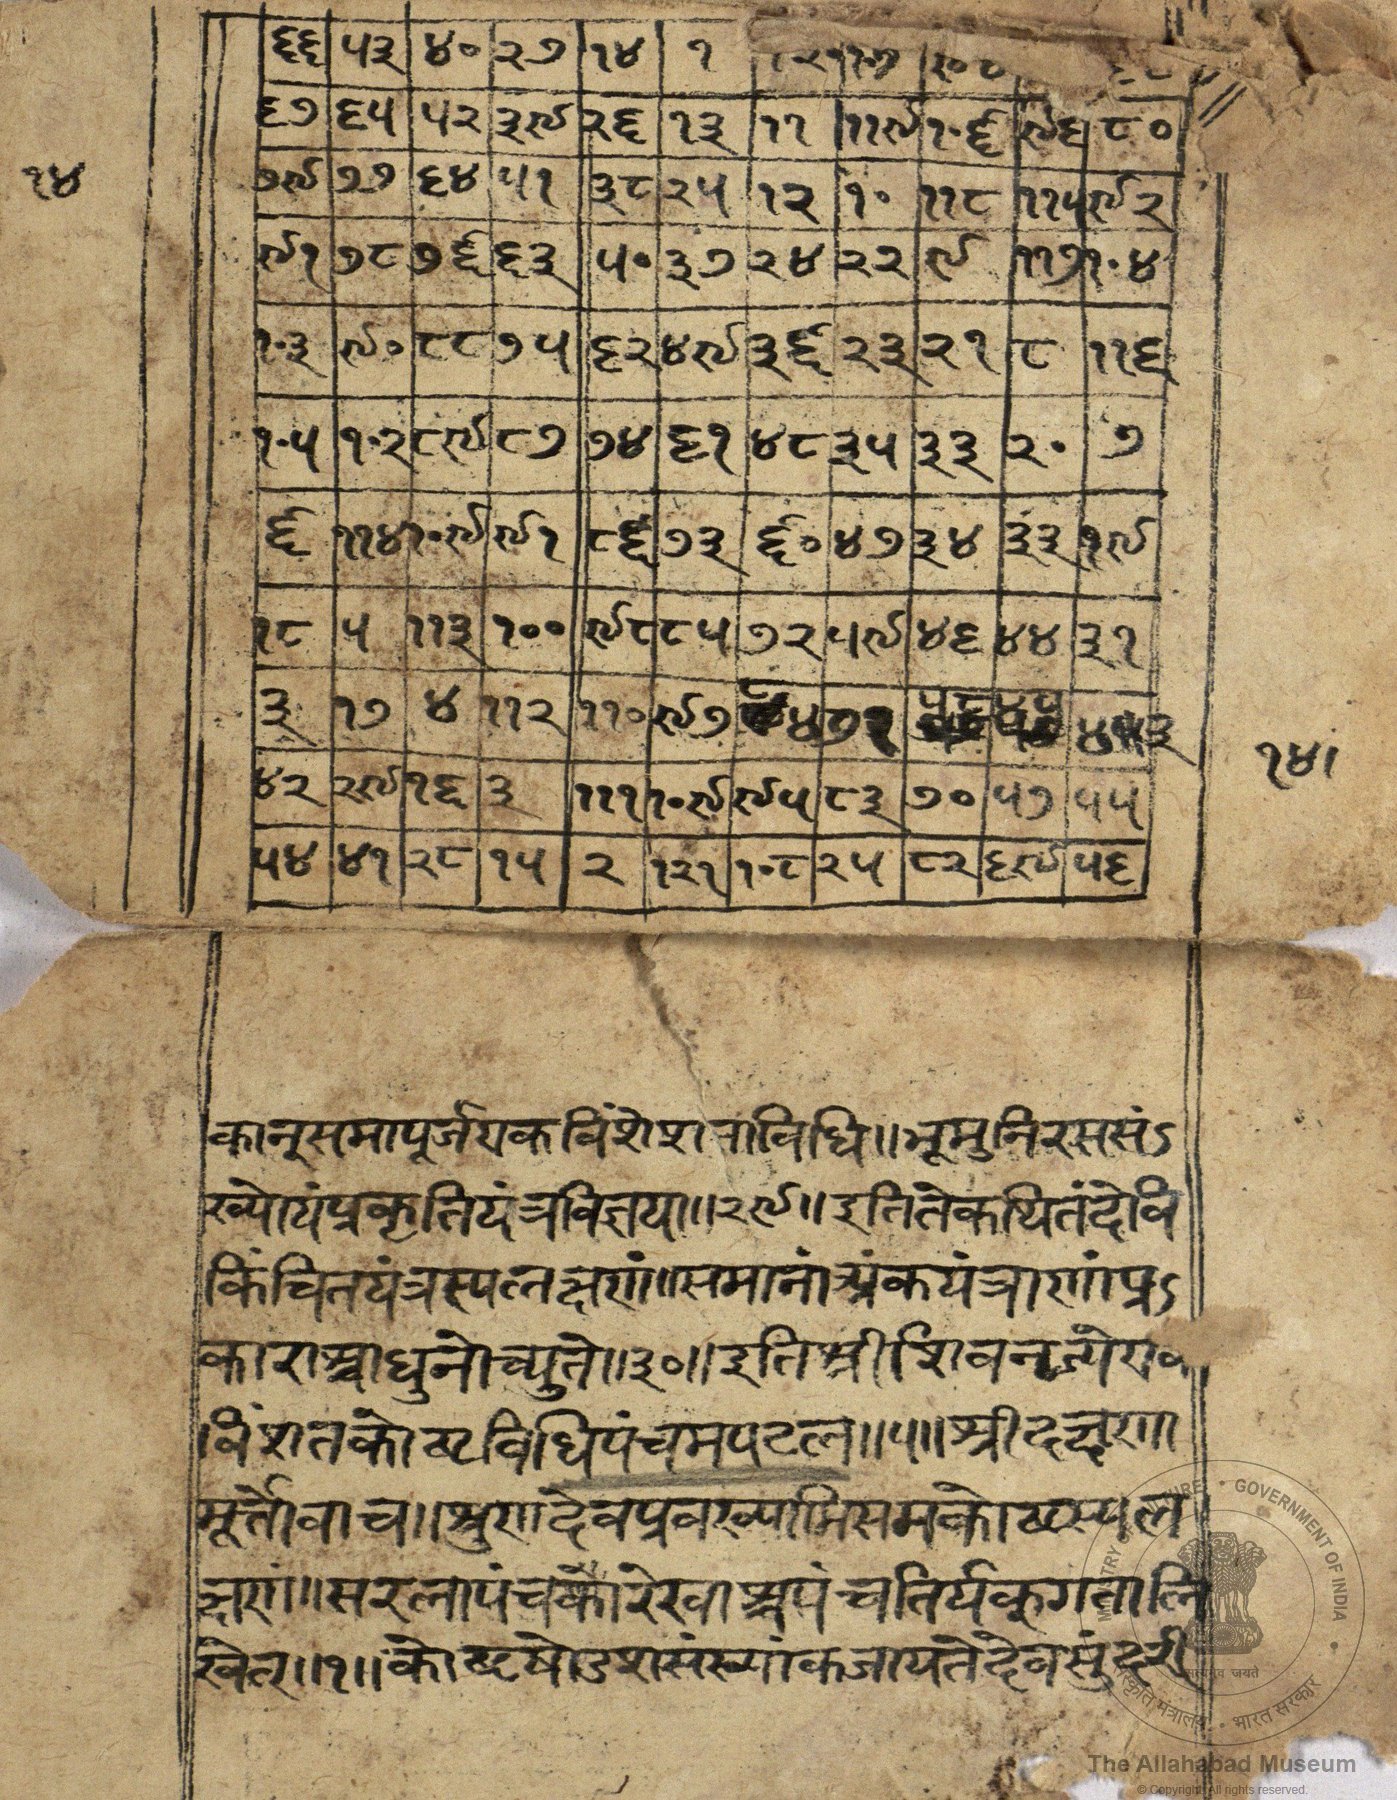 ६६ ५३ ४० २७ १४ १
६७ ६५ ५२ ३९ २६ १३ ११ ११९ १०६ ९६ ८०
१४
७९ ७७ ६४ ५१ ३८ २५ १२ १० ११८ ११५ ९२
९१ ७८ ७६ ६३ ५० ३७ २४ २२ ९ ११७ १०४
१०३ ९० ८८ ७५ ६२ ४९ ३६ २३ २१ ८ ११६
१०५ १०२ ८९ ८७ ७४ ६१ ४८ ३५ ३३ २० ७
६ ११४ १०९ ९१ ८६ ७३ ६० ४७ ३४ ३३ १९
१८ ५ ११३ १०० ९८ ८५ ७२ ५९ ४६ ४४ ३१
३ १७ ४ ११२ ११० ९७
१४।
४२ २९ १६ ३ १११ १०९ ९५ ८३ ७० ५७ ५५
५४ ४१ २८ १५ २ १२१ १०८ २५ ८२ ६९ ५६
कानुसमापूर्जयकविंशेशताविधि॥भूमुनिरससंऽ
ख्योयंप्रकृतियंत्रविज्ञया॥२९॥इतितेकथितंदेवि
किंचितयंत्रस्यलक्षणं॥समानांत्र्यंकयंत्राणांप्रऽ
काराश्चाधुनोच्युते॥३०॥इतिश्रीशिव
विंशतकोष्टविधिपंचमपटल॥५॥श्रीदक्षणा
मूर्त्तोवाच॥श्रुणादेवप्रवख्यामिसमकोष्टस्यल
क्षणं॥सरलापंचकौरेखाश्चपंचतिर्यकगतालि
खेत्॥१॥कोष्टषोडशसंख्यांकजायतेदेवसुंदरी
MINISTRY OF CULTURE • GOVERNMENT OF INDIA
सत्यमेव जयते
संस्कृति मंत्रालय • भारत सरकार
The Allahabad Museum
© Copyright. All rights reserved.